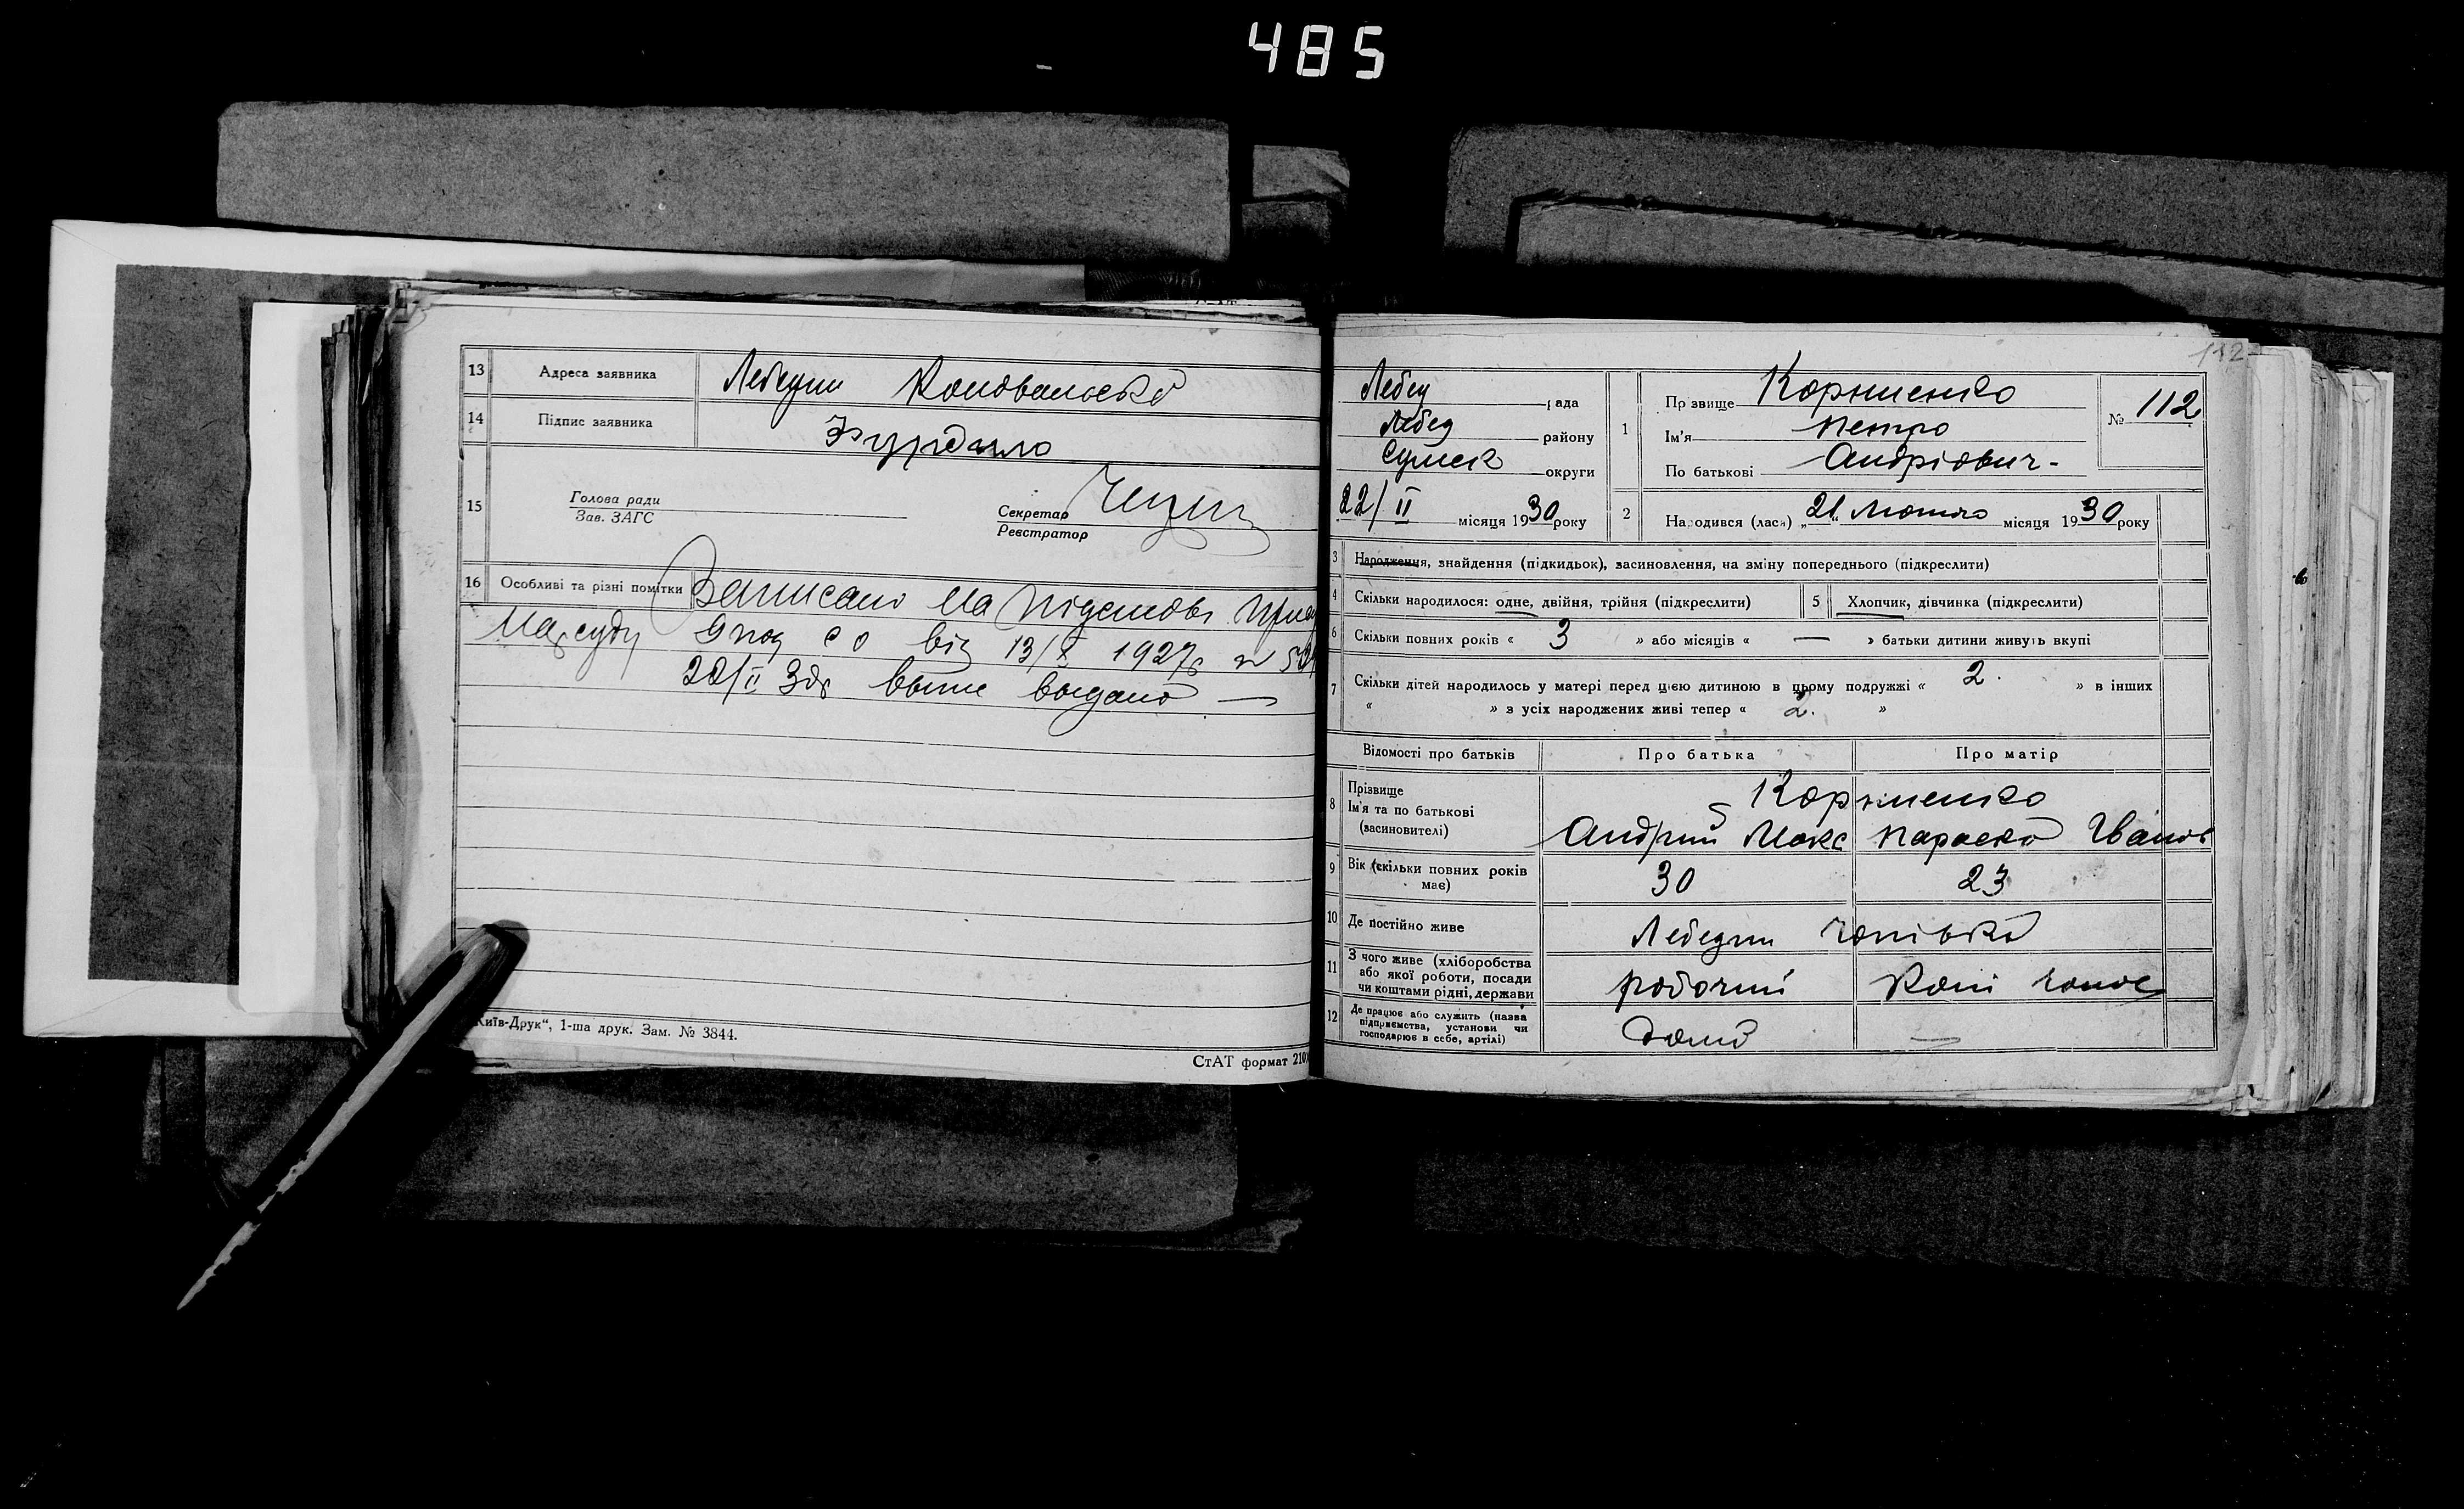 485
13 Адреса заявника Лебедин Коновальска
14 Підпис заявника Фурдило
15 Голова ради
Зав. ЗАГС
Секретар
Реєстратор
16 Особливі та різні помітки Записано на підставі
Нарсуду від 13/X 1927
22/II 30р выпис выдано —
Київ-Друк“, 1-ша друк. Зам. № 3844.
СтАТ формат 210
112
Лебед рада
Лебед району
Сумск округи
22/II місяця 1930 року
1 Прізвище Корниенко
Ім'я Петро
По батькові Андріович-
№ 112
2 Народився (лася) „21“ Лютого місяця 1930 року
3 Народження, знайдення (підкидьок), засиновлення, на зміну попереднього (підкреслити)
4 Скільки народилося: одне, двійня, трійня (підкреслити) 5 Хлопчик, дівчинка (підкреслити)
6 Скільки повних років « 3 » або місяців « — » батьки дитини живуть вкупі
7 Скільки дітей народилось у матері перед цією дитиною в цьому подружжі « 2. » в інших
« » з усіх народжених живі тепер « 2. »
Відомості про батьків Про батька Про матір
8 Прізвище
Ім'я та по батькові
(засиновителі)
Корниенко
Андрий Макс Параска Іванов
9 Вік (скільки повних років має) 30 23
10 Де постійно живе Лебедин
11 З чого живе (хліборобства
або якої роботи, посади
чи коштами рідні, держави
робочий
12 Де працює або служить (назва
підприємства, установи чи
господарює в себе, артілі)
—